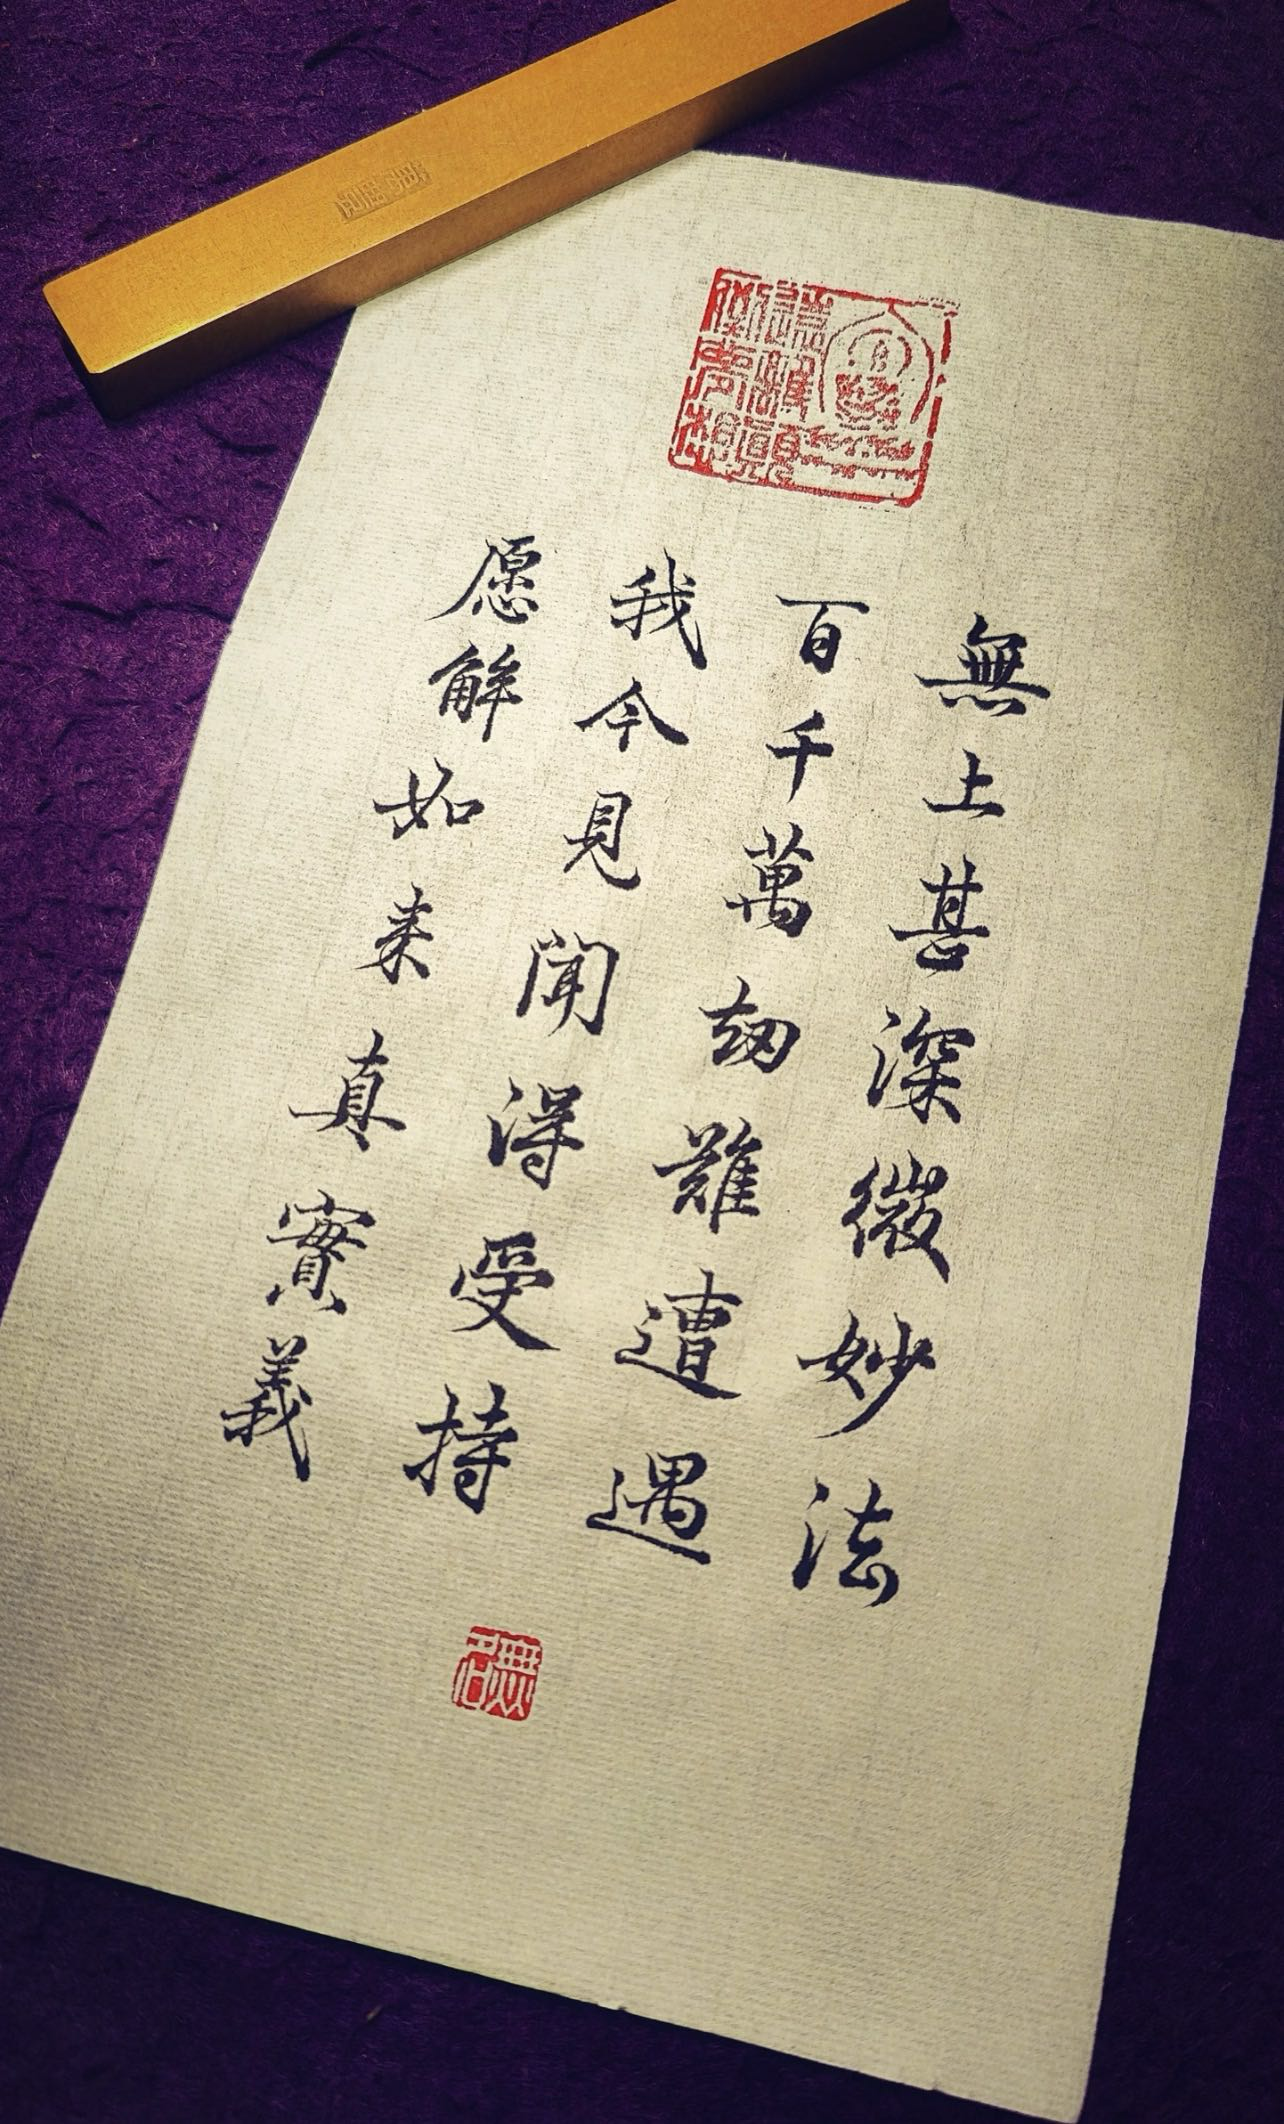 無上甚深微妙法
百千萬劫難遭遇
我今見聞得受持
愿解如来真實義
無名